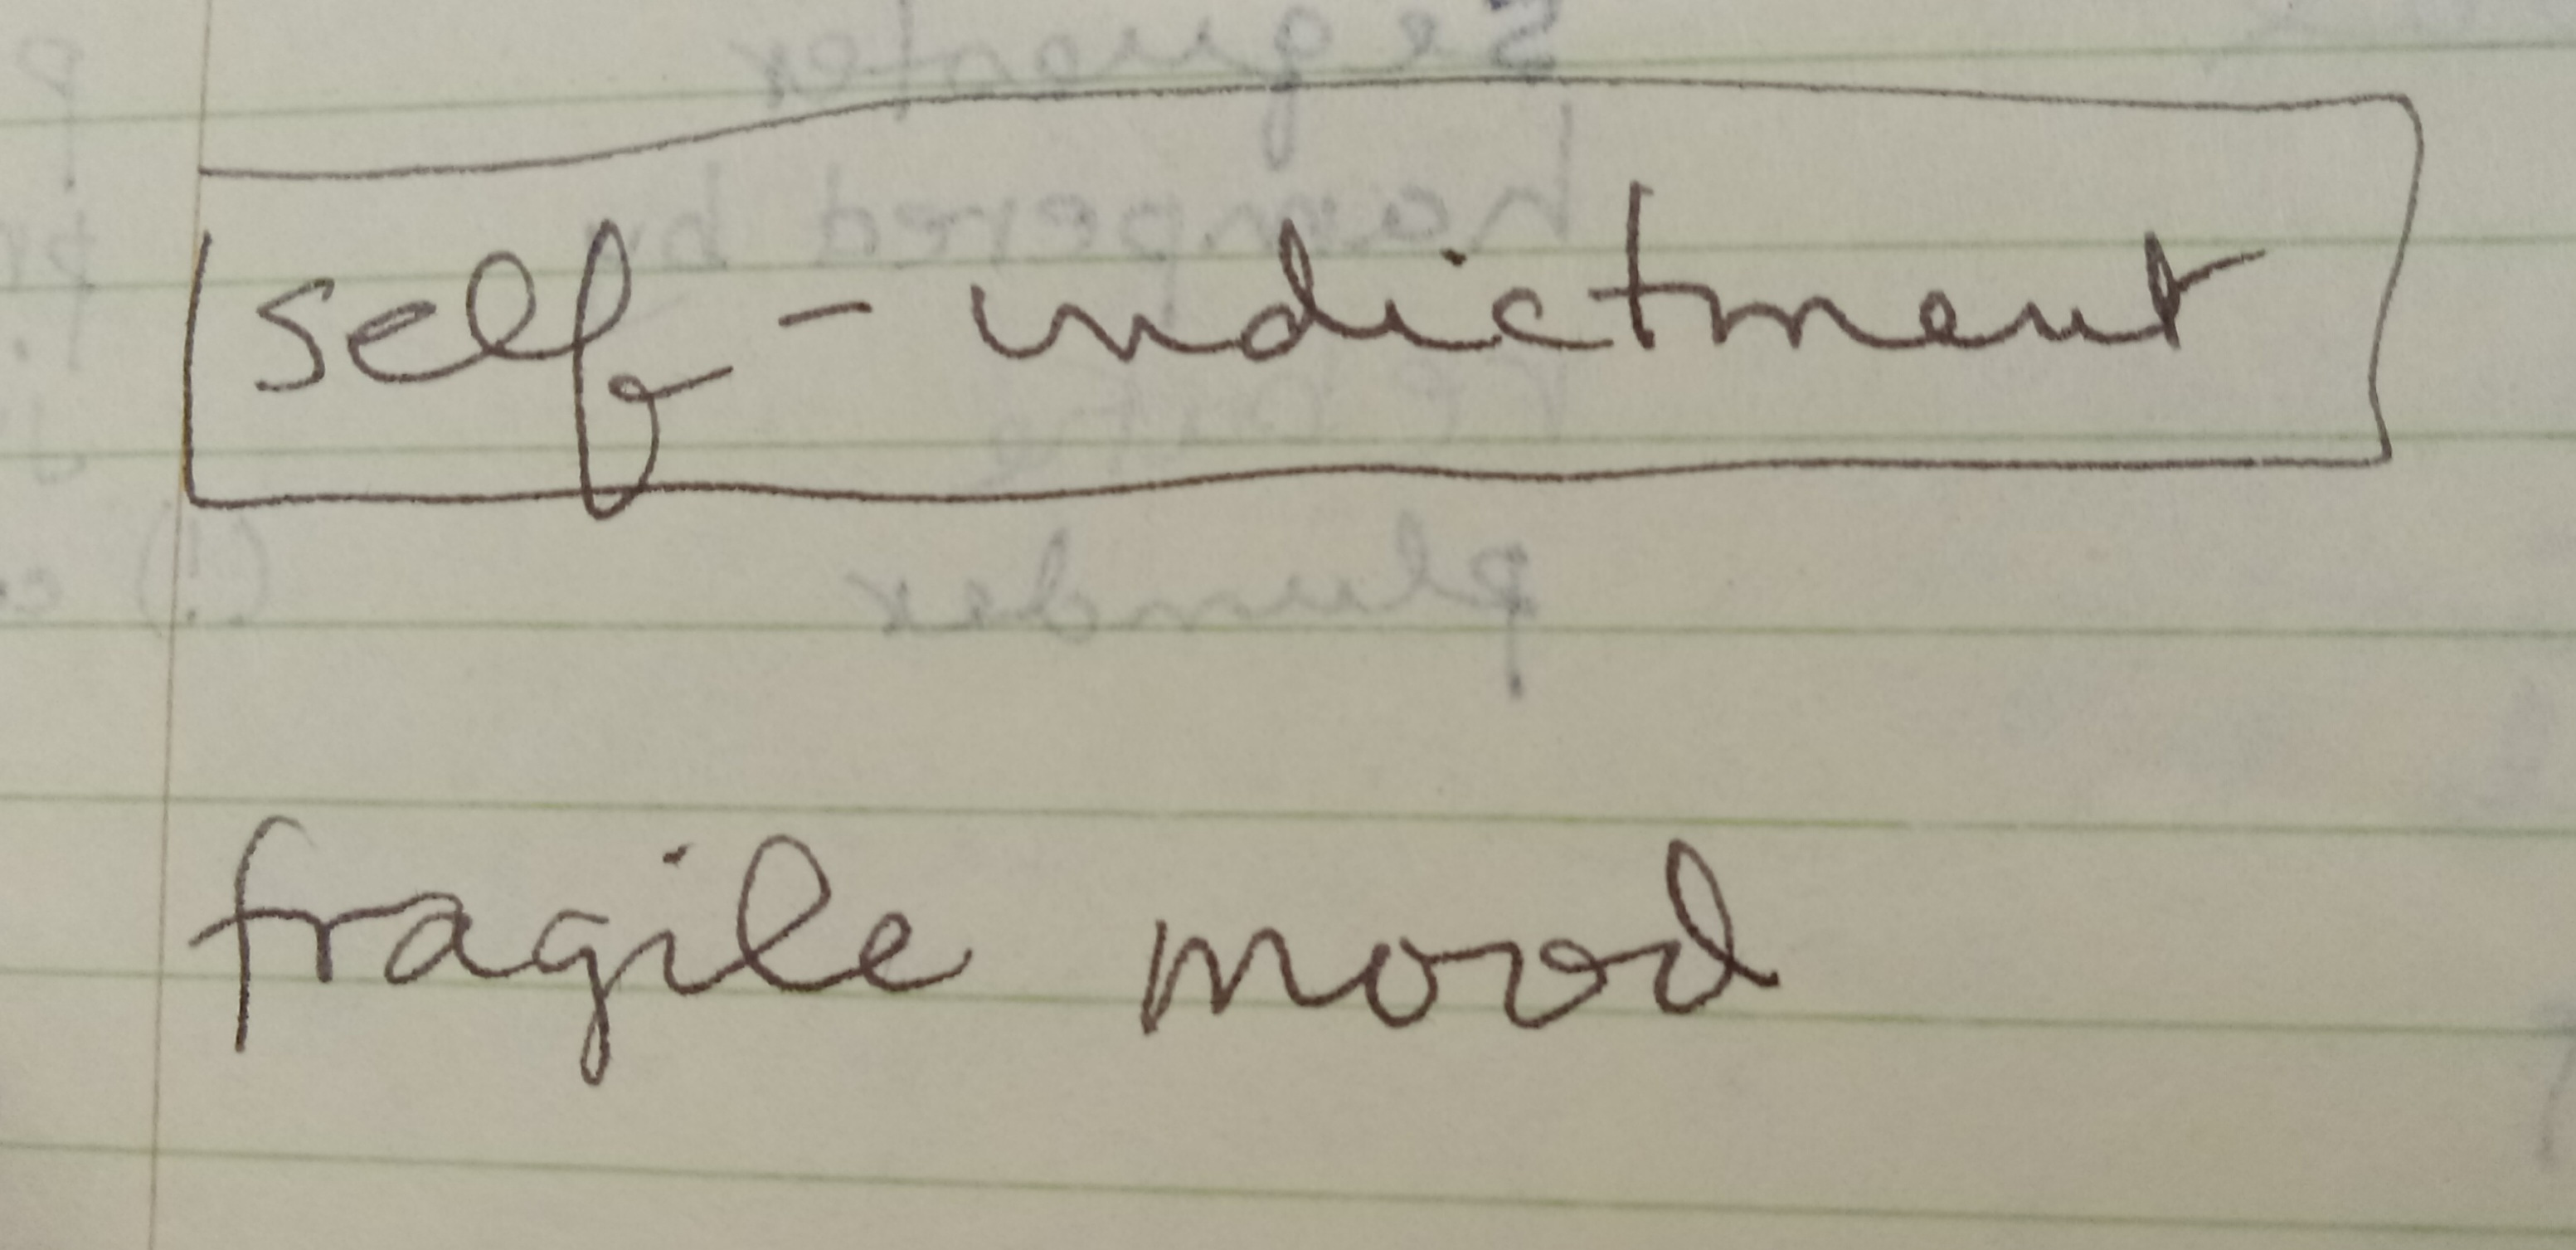 self - indictment
fragile mood